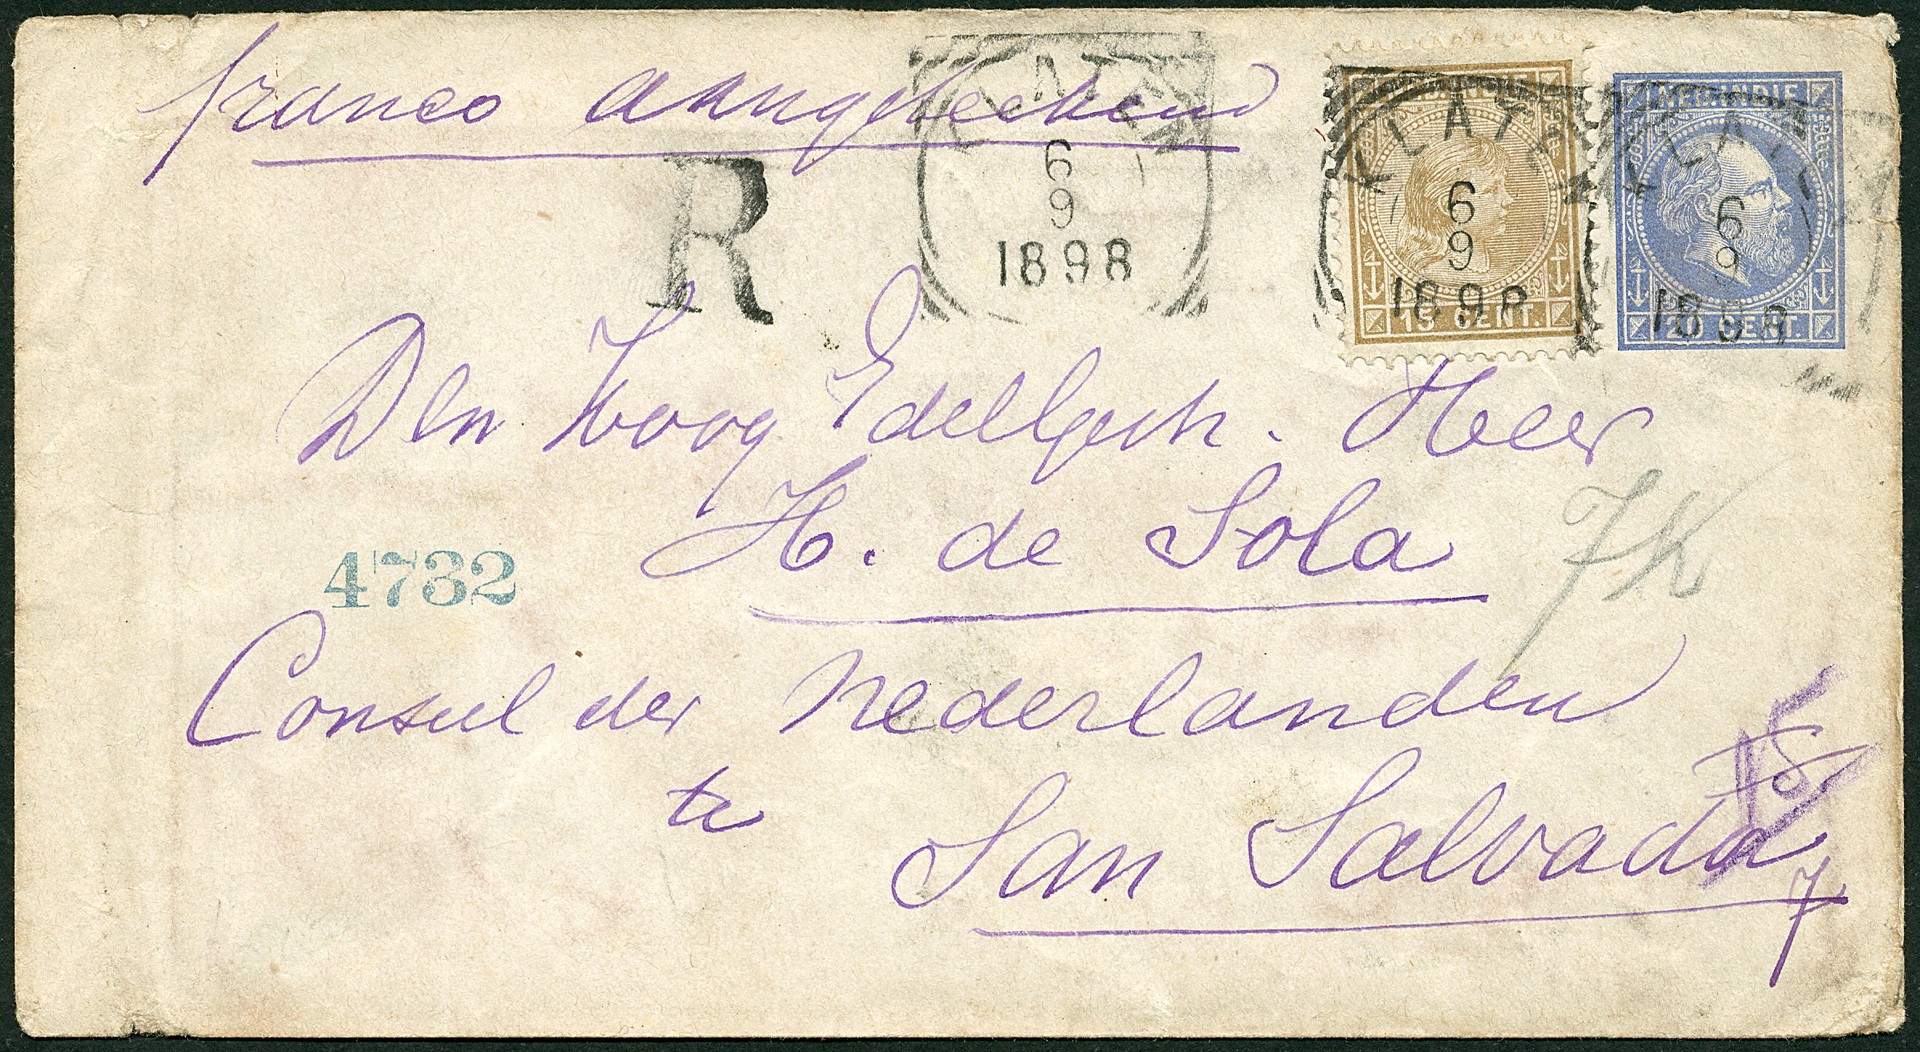 franco aangeteekend
R
KLATEN
6
9
1898
NED. INDIE
KLATEN
6
9
1898
15 CENT.
NED. INDIE
KLATEN
6
9
1898
20 CENT.
Den Hoog EdelGestr. Heer
H. de Sola
4732
Consul der Nederlanden
te
San Salvador